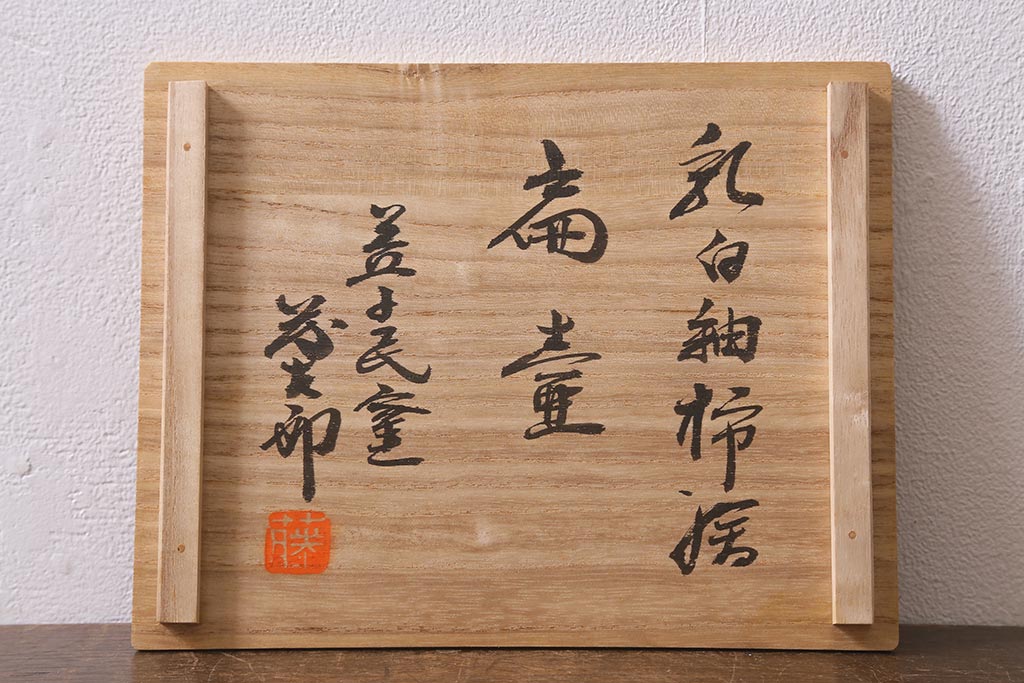 乳白釉柿絵
扁壷
益子民窯
藤太郎
藤